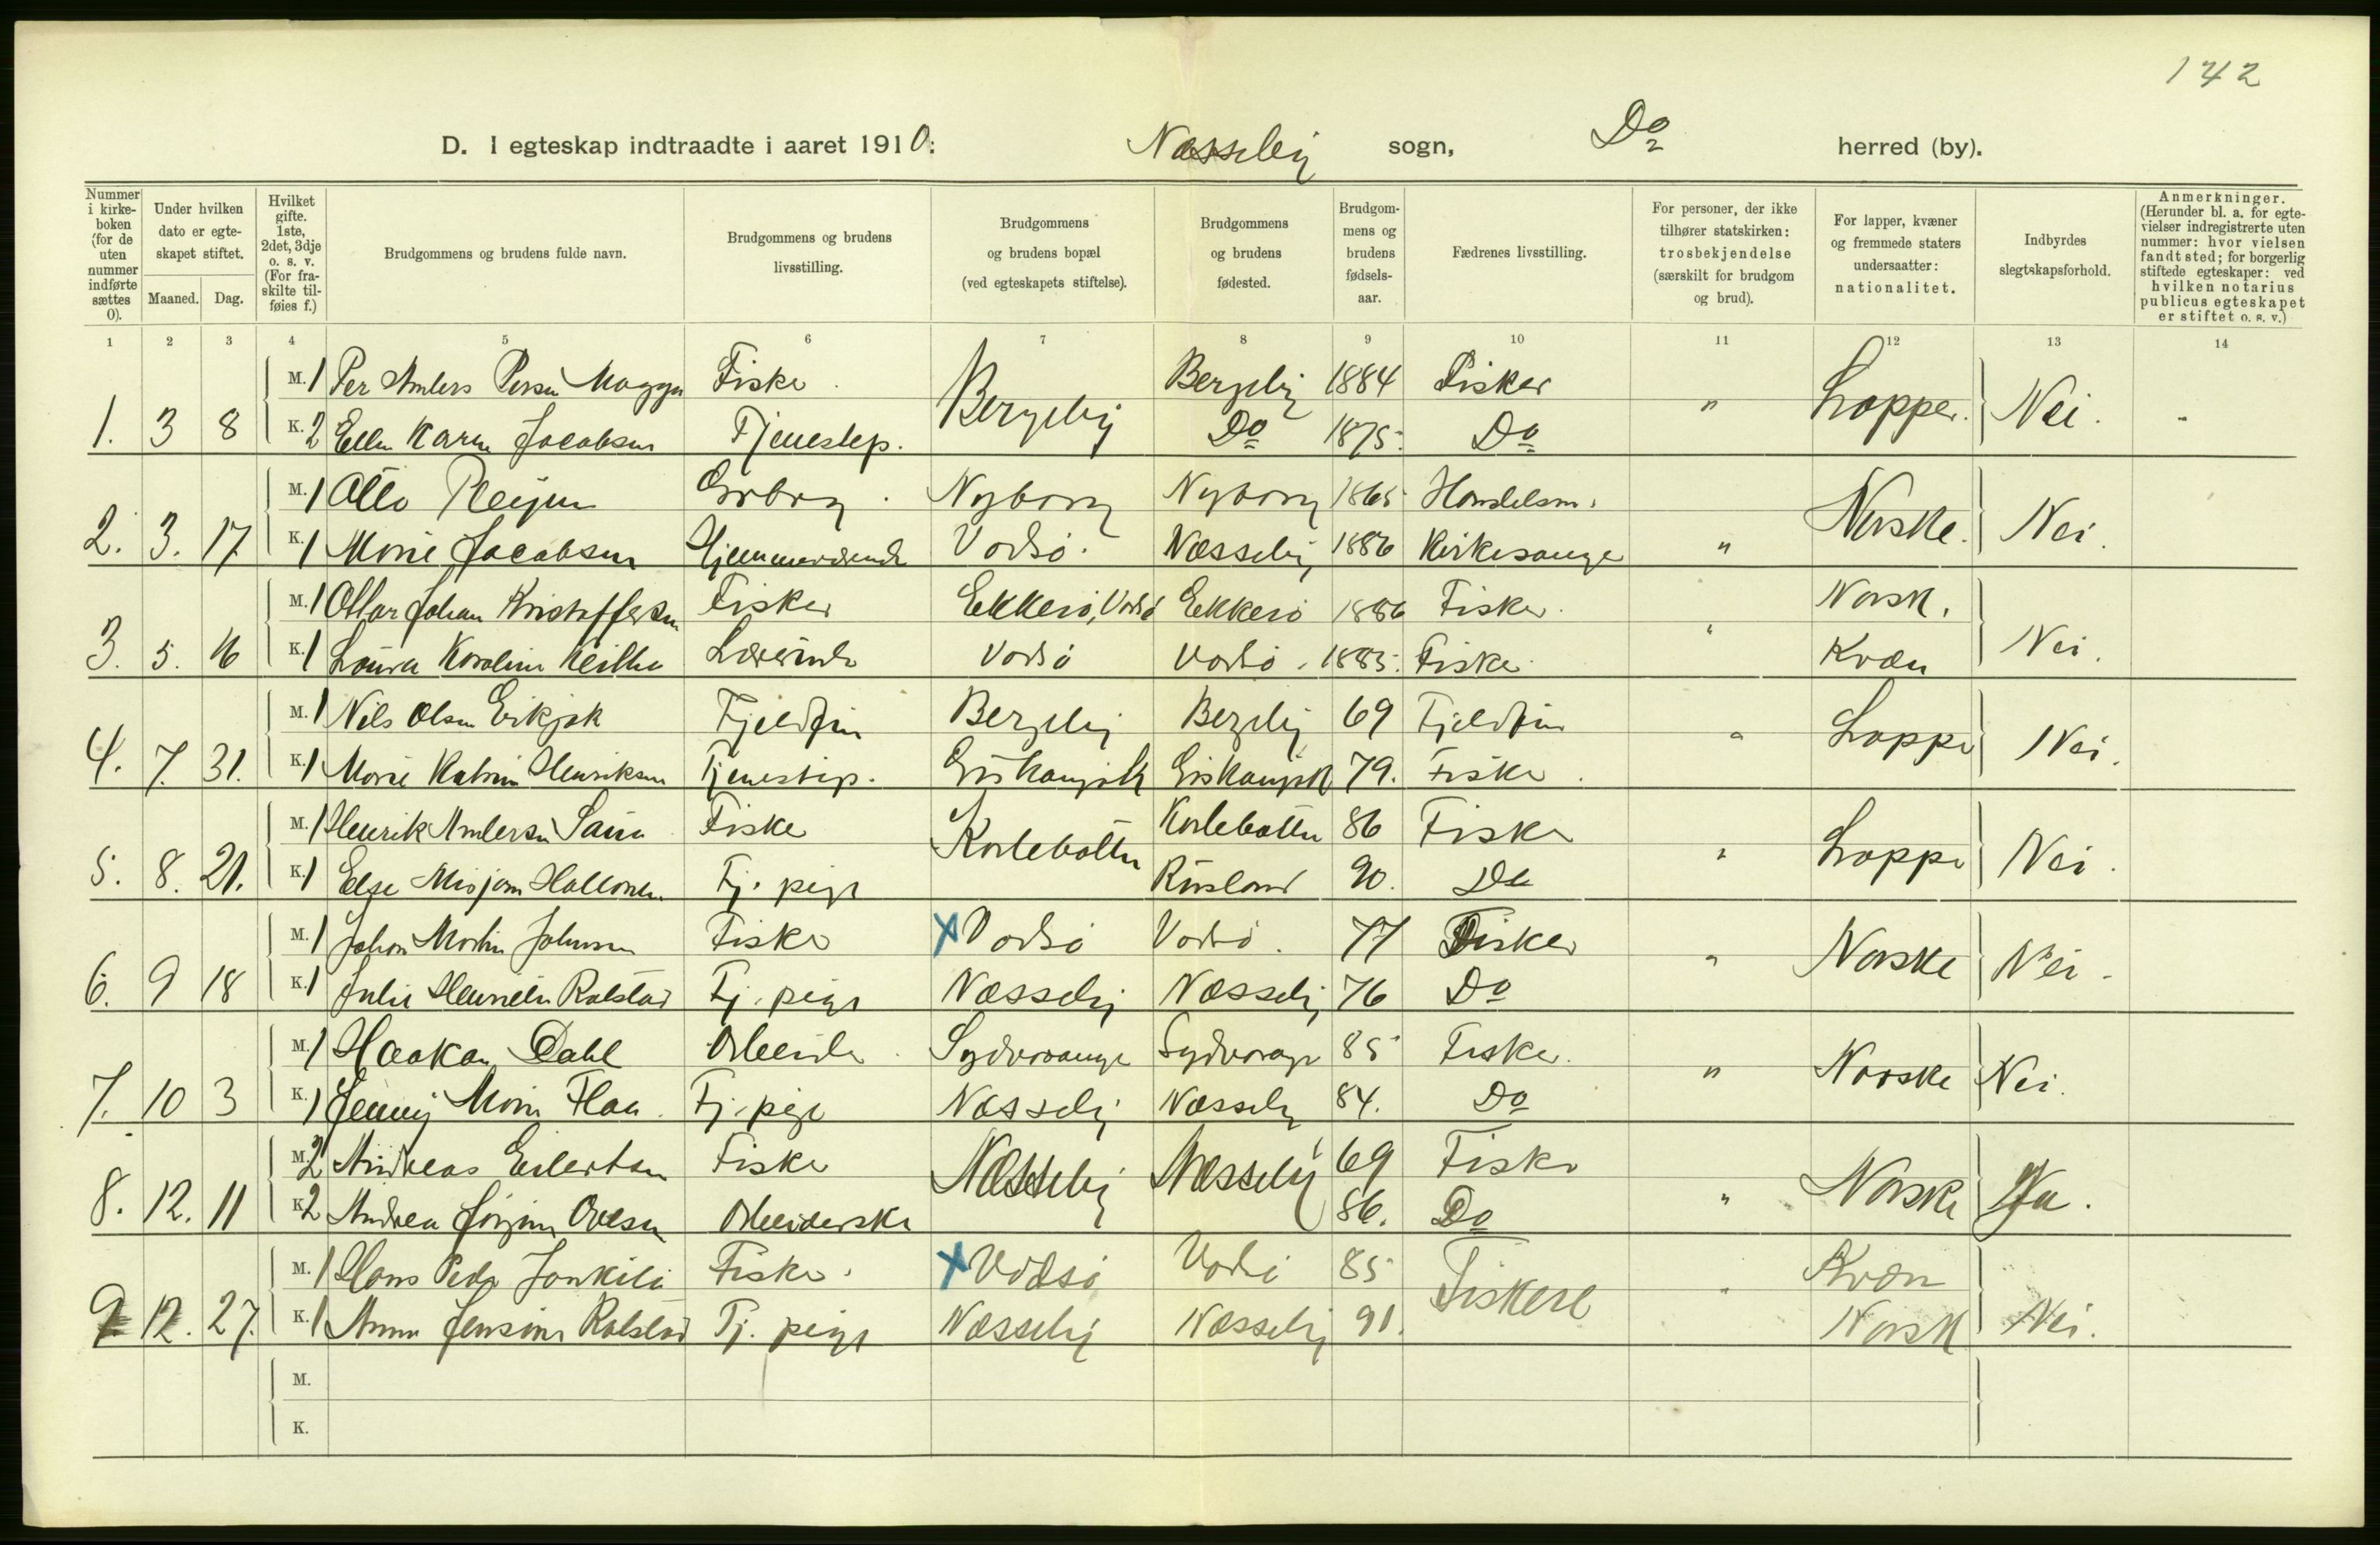 142
D. I egteskap indtraadte i aaret 1910: Næsseby sogn, Do herred (by).
Nummer i kirkeboken (for de uten nummer indførte sættes 0).
Under hvilken dato er egteskapet stiftet.
Maaned. Dag.
Hvilket gifte. 1ste, 2det, 3dje o. s. v. (For fraskilte tilføies f.)
Brudgommens og brudens fulde navn.
Brudgommens og brudens livsstilling.
Brudgommens og brudens bopæl (ved egteskapets stiftelse).
Brudgommens og brudens fødested.
Brudgommens og brudens fødselsaar.
Fædrenes livsstilling.
For personer, der ikke tilhører statskirken: trosbekjendelse (særskilt for brudgom og brud).
For lapper, kvæner og fremmede staters undersaatter: nationalitet.
Indbyrdes slegtskapsforhold.
Anmerkninger. (Herunder bl. a. for egtevielser indregistrerte uten nummer: hvor vielsen fandt sted; for borgerlig stiftede egteskaper: ved hvilken notarius publicus egteskapet er stiftet o. s. v.)
1 2 3 4 5 6 7 8 9 10 11 12 13 14
M. 1 Per Anders Persen Magga Fisker Bergeby Bergeby 1884 Fisker " Lapper. Nei. "
1. 3 8 K. 2 Ellen Karen Jacobsen Tjenestep. Do 1875. Do
M. 1 Otto Pleym Nyborg Nyborg 1865 Handelsm. Norske. Nei.
2. 3. 17. K. 1 Marie Jacobsen Hjemmeværende Vadsø. Næsseby 1886 Kirkesanger "
M. 1 Ottar Johan Kristoffersen Fisker Ekkerø, Vadsø Ekkerø 1886 Fisker. " Norsk. Nei.
3. 5. 16 K. 1 Laura Karoline Lærerinde Vadsø Vadsø. 1883. Fisker Kvæn
M. 1 Nils Olsen Erikjok Fjeldfin Bergeby Bergeby 69 Fjeldfin " Lapper Nei.
4. 7. 31. K. 1 Marie Katrine Henriksen Tjenestep. 79. Fisker.
M. 1 Henrik Andersen Fisker Karlebotten Karlebotten 86 Fisker " Lapper Nei.
5. 8. 21. K. 1 Else Mirjam Tj. pige Rusland 90. Do
M. 1 Johan Martin Johnsen Fisker x Vadsø Vadsø. 77 Fisker " Norske Nei.
6. 9 18 K. 1 Julie Rolstad Tj. pige Næsseby Næsseby 76 Do
M. 1 Haakon Dahl Arbeider. Sydvaranger Sydvaranger 85 Fisker. " Norske Nei.
7. 10 3 K. 1 Jenny Marie Flaa. Tj. pige Næsseby Næsseby 84. Do
M. 2 Andreas Eilertsen Fisker Næsseby Næsseby 69 Fisker " Norske
8. 12. 11 K. 2 Andrea Jørgine Olesen Arbeiderske 86. Do
M. 1 Hans Peder Fisker. x Vadsø Vadsø 85 Fiskere " Kvæn Nei.
9. 12. 27. K. 1 Anna Jensine Rolstad Tj. pige Næsseby Næsseby 91. Norsk
M.
K.